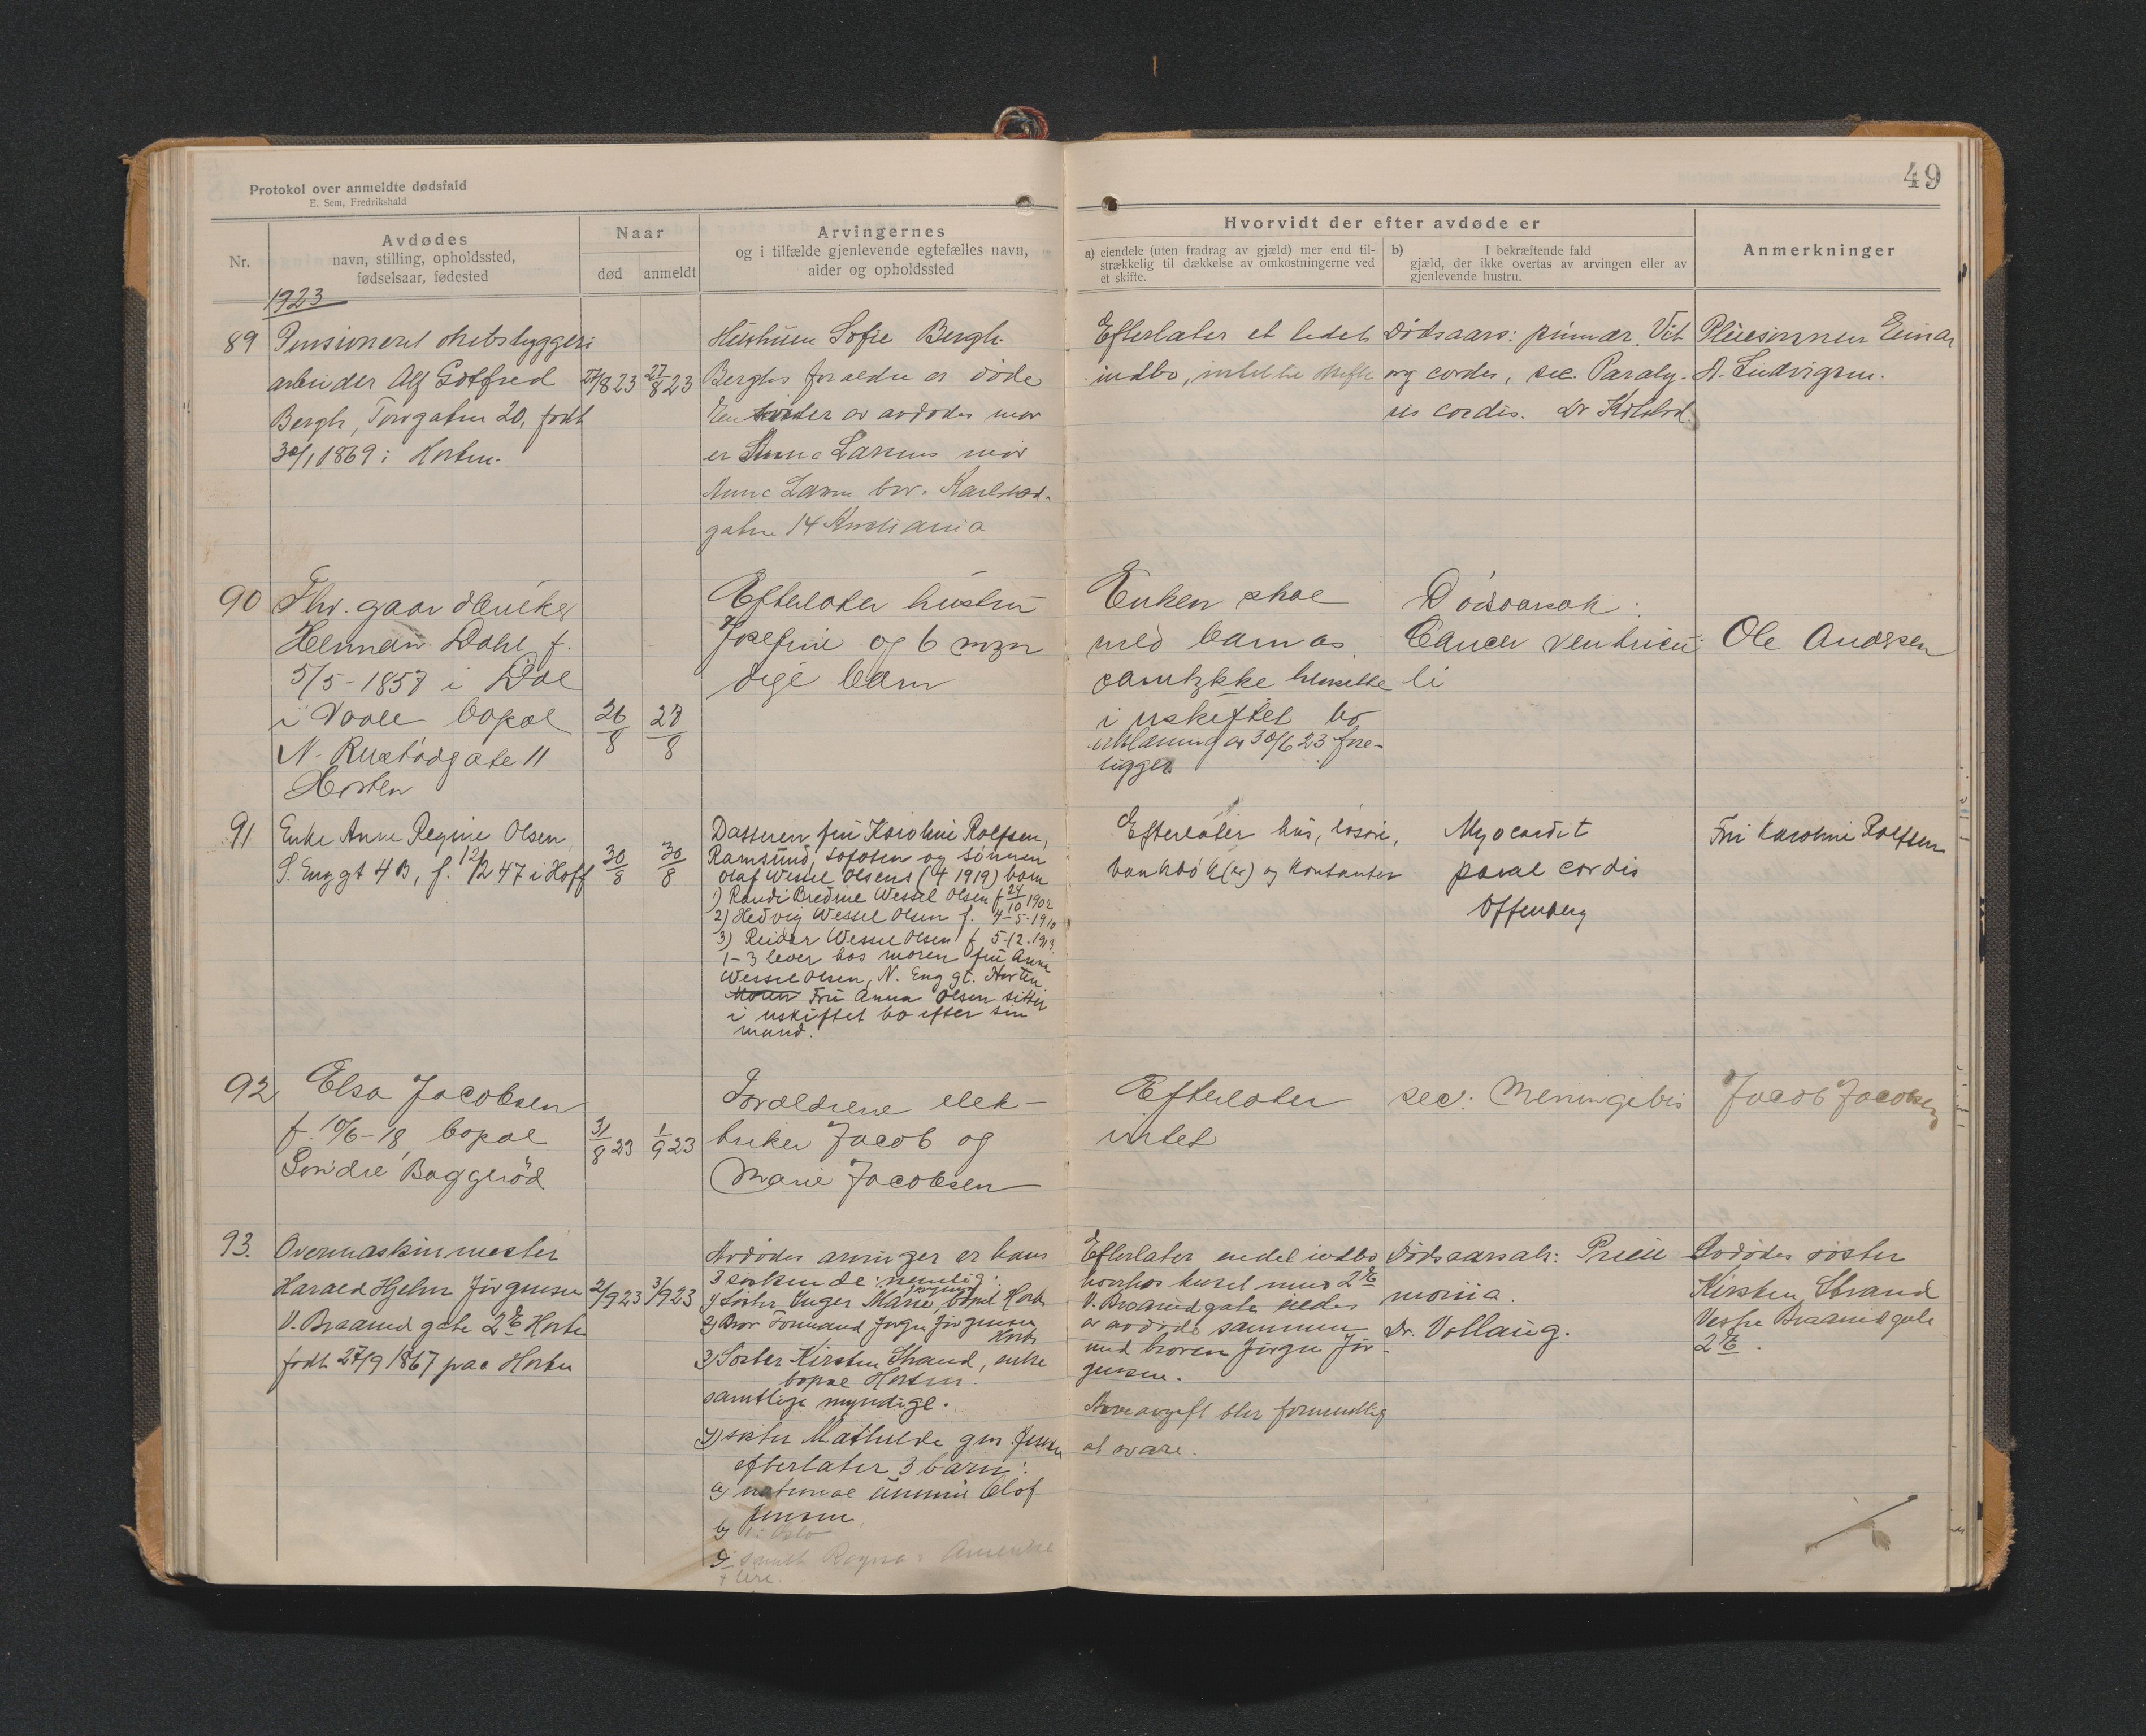 Protokol over anmeldte dødsfald
E. Sem, Fredrikshald
49
Nr.
Avdødes
navn, stilling, opholdssted,
fødselsaar, fødested
Naar
død
anmeldt
Arvingernes
og i tilfælde gjenlevende egtefælles navn,
alder og opholdssted
Hvorvidt der efter avdøde er
a) eiendele (uten fradrag av gjæld) mer end til-
strækkelig til dækkelse av omkostningerne ved
et skifte.
b) I bekræftende fald
gjæld, der ikke overtas av arvingen eller av
gjenlevende hustru.
Anmerkninger
1923
89
Pensioneret skibsbyggeri
arbeider Alf Gotfred
Bergh, Torvgaten 20, født
30/1 1869 i Horten.
27/8 23
27/8 23
Hustruen Sofie Bergh.
Berghs foraldre er døde
En søster av avdødes mor
er Anna Larsens mor
Anna Larsen bor. Karlstad-
gaten 14 Kristiania
Efterlater et lidet
indbo, intet til skifte
Dødsaars: primær. Vit
org cordis, sec. Paraly-
sis cordis. Dr
Pleiesønnen Einar
A. Ludvigsen.
90
Fhv. gaardbruker
Herman Dahl f.
5/5-1857 i Dal
i Vaale bopæl
N. Rustadgate 11
Horten
26/8
28/8
Efterlater hustru
Josefine og 6 myn
dige barn
Enken skal
med barnas
samtykke hensitte
i uskiftet bo
erklæring av 30/6 23 fore-
ligger
Dødsaarsak:
Cancer ventricu-
li
Ole Andersen
91
Enke Anne Regine Olsen
S. Enggt 4B, f. 12/12 47 i Hoff
30/8
30/8
Datteren fru Karoline Rolfsen,
Ramsund, Lofoten og sønnen
Olaf Wessel Olsens († 1919) barn
1) Randi Bredine Wessel Olsen f. 24/10 1902
2) Hedvig Wessel Olsen f. 4-5-1910
3) Reidar Wessel Olsen f. 5-12-1913
1-3 lever hos moren fru Anna
Wessel Olsen, N. Enggt. Horten
Moren Fru Anna Olsen sitter
i uskiftet bo efter sin
mand.
Efterlater hus, løsøre,
bankbok(er) og kontanter
Myocardit
paral cordis
Offenberg
Fru Karoline Rolfsen
92
Elsa Jacobsen
f. 10/6-18, bopæl
Søndre Baggerød
31/8 23
1/9 23
Foraldrene elek-
triker Jacob og
Marie Jacobsen
Efterlater
intet
sec: Meningitis
Jacob Jacobsen
93.
Overmaskinmester
Harald Hjelm Jørgensen
V. Braarud gate 2b Horten
født 27/9 1867 paa Horten
2/9 23
3/9 23
Avdødes arvinger er hans
3 søskende: nemlig:
1) Søster Inger Marie Jørgensen, bopæl Horten
2) Bror Formand Jørgen Jørgensen Horten
3) Søster Kirsten Strand, enke
bopæl Horten.
samtlige myndige.
4) søster Mathilde gm. Jensen
efterlater 3 barn:
a) Olaf
Jensen
b) i Oslo
c) Ragna i Amerika
Efterlater endel indbo
hvorhos huset med 2b
V. Braarudgate eiedes
av avdøde sammen
med broren Jørgen Jør-
gensen.
Arveavgift blir formentlig
at svare.
Dødsaarsak: Pneu
monia.
Dr. Vollaug.
Avdødes søster
Kirsten Strand
Vestre Braarudgate
2b.